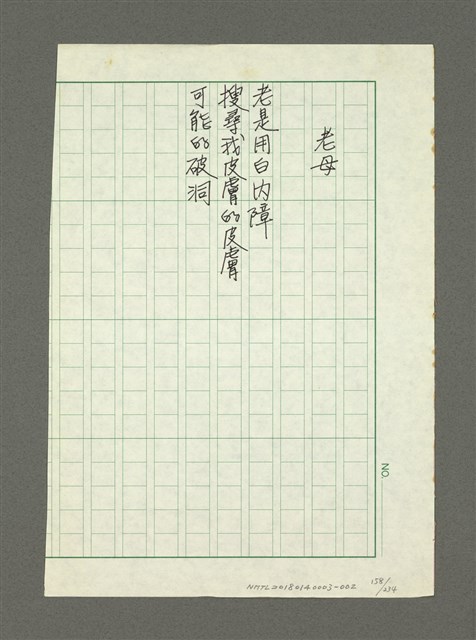 老母
老是用白內障
搜尋我皮膚的皮膚
可能的破洞
NO.
NMTL20180140003-002
158/234